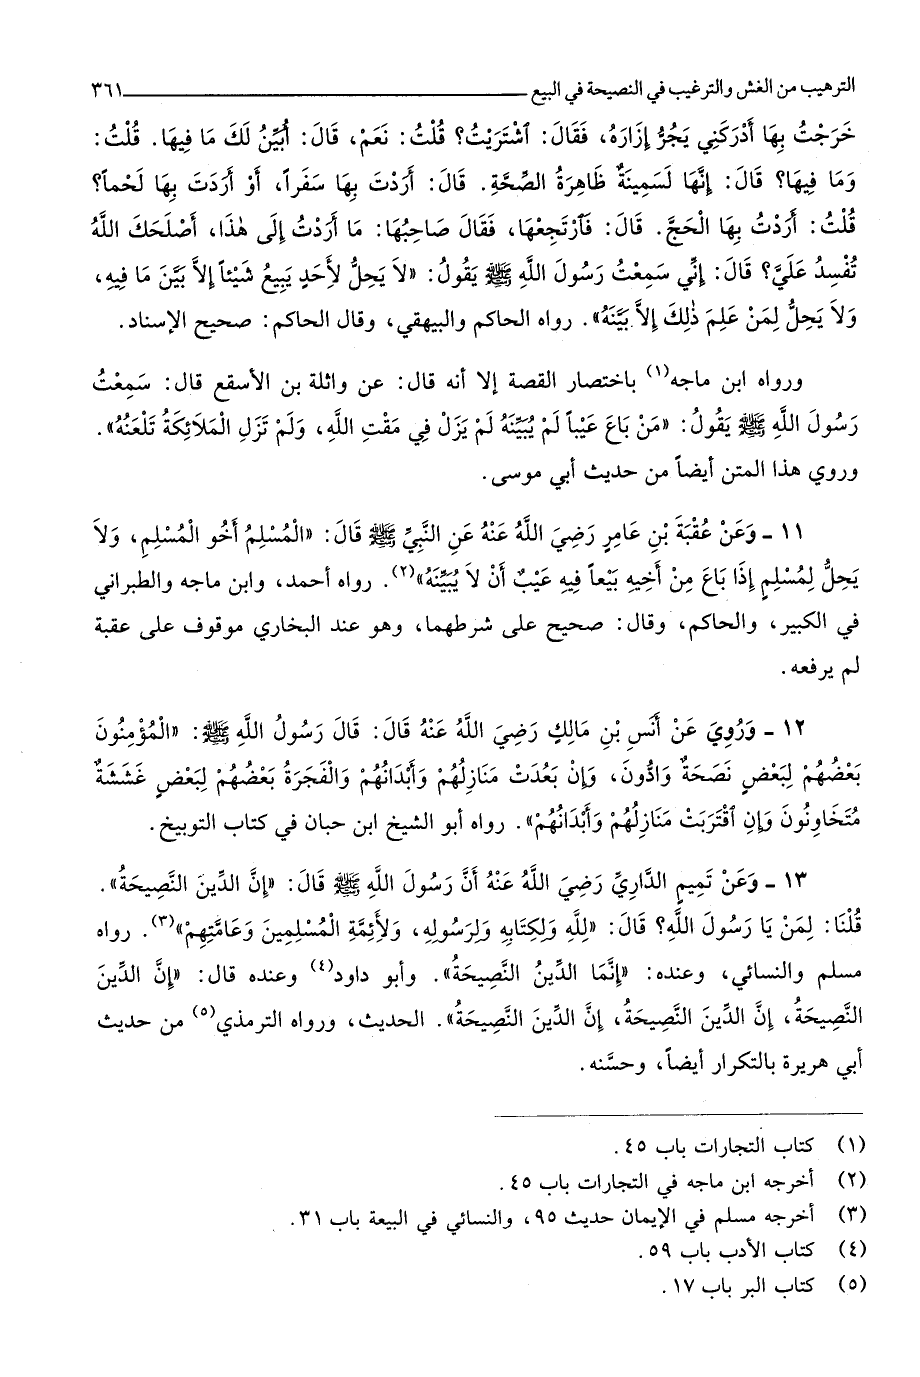 الترهيب من الغش والترغيب في النصيحة في البيع ٣٦١
خَرَجْتُ بِهَا أَدْرَكَنِي يَجُرُّ إِزَارَهُ، فَقَالَ: ٱشْتَرَيْتُ؟ قُلْتُ: نَعَمْ، قَالَ: أُبَيِّنُ لَكَ مَا فِيهَا. قُلْتُ:
وَمَا فِيهَا؟ قَالَ: إِنَّهَا لَسَمِينَةٌ ظَاهِرَةُ الصِّحَّةِ. قَالَ: أَرَدْتَ بِهَا سَفَراً، أَوْ أَرَدَتَ بِهَا لَحْماً؟
قُلْتُ: أَرَدْتُ بِهَا الْحَجَّ. قَالَ: فَٱرْتَجِعْهَا، فَقَالَ صَاحِبُهَا: مَا أَرَدْتُ إِلَى هٰذَا، أَصْلَحَكَ اللَّهُ
تُفْسِدُ عَلَيَّ؟ قَالَ: إِنِّي سَمِعْتُ رَسُولَ اللَّهِ ﷺ يَقُولُ: «لاَ يَحِلُّ لأَحَدٍ يَبِيعُ شَيْئاً إِلاَّ بَيَّنَ مَا فِيهِ،
وَلاَ يَحِلُّ لِمَنْ عَلِمَ ذٰلِكَ إِلاَّ بَيَّنَهُ». رواه الحاكم والبيهقي، وقال الحاكم: صحيح الإسناد.
ورواه ابن ماجه(١) باختصار القصة إلا أنه قال: عن واثلة بن الأسقع قال: سَمِعْتُ
رَسُولَ اللَّهِ ﷺ يَقُولُ: «مَنْ بَاعَ عَيْباً لَمْ يُبَيِّنَهُ لَمْ يَزَلْ فِي مَقْتِ اللَّهِ، وَلَمْ تَزَلِ الْمَلاَئِكَةُ تَلْعَنُهُ».
وروي هذا المتن أيضاً من حديث أبي موسى.
١١ - وَعَنْ عُقْبَةَ بْنِ عَامِرٍ رَضِيَ اللَّهُ عَنْهُ عَنِ النَّبِيِّ ﷺ قَالَ: «الْمُسْلِمُ أَخُو الْمُسْلِمِ، وَلاَ
يَحِلُّ لِمُسْلِمٍ إِذَا بَاعَ مِنْ أَخِيهِ بَيْعاً فِيهِ عَيْبٌ أَنْ لاَ يُبَيِّنَهُ»(٢). رواه أحمد، وابن ماجه والطبراني
في الكبير، والحاكم، وقال: صحيح على شرطهما، وهو عند البخاري موقوف على عقبة
لم يرفعه.
١٢ - وَرُوِيَ عَنْ أَنَسِ بْنِ مَالِكٍ رَضِيَ اللَّهُ عَنْهُ قَالَ: قَالَ رَسُولُ اللَّهِ ﷺ: «الْمُؤْمِنُونَ
بَعْضُهُمْ لِبَعْضٍ نَصَحَةٌ وَادُّونَ، وَإِنْ بَعُدَتْ مَنَازِلُهُمْ وَأَبْدَانُهُمْ وَالْفَجَرَةُ بَعْضُهُمْ لِبَعْضٍ غَشَشَةٌ
مُتَخَاوِنُونَ وَإِنِ ٱقْتَرَبَتْ مَنَازِلُهُمْ وَأَبْدَانُهُمْ». رواه أبو الشيخ ابن حبان في كتاب التوبيخ.
١٣ - وَعَنْ تَمِيمٍ الدَّارِيِّ رَضِيَ اللَّهُ عَنْهُ أَنَّ رَسُولَ اللَّهِ ﷺ قَالَ: «إِنَّ الدِّينَ النَّصِيحَةُ».
قُلْنَا: لِمَنْ يَا رَسُولَ اللَّهِ؟ قَالَ: «لِلَّهِ وَلِكِتَابِهِ وَلِرَسُولِهِ، وَلأَئِمَّةِ الْمُسْلِمِينَ وَعَامَّتِهِمْ»(٣). رواه
مسلم والنسائي، وعنده: «إِنَّمَا الدِّينُ النَّصِيحَةُ». وأبو داود(٤) وعنده قال: «إِنَّ الدِّينَ
النَّصِيحَةُ، إِنَّ الدِّينَ النَّصِيحَةُ، إِنَّ الدِّينَ النَّصِيحَةُ». الحديث، ورواه الترمذي(٥) من حديث
أبي هريرة بالتكرار أيضاً، وحسَّنه.
(١) كتاب التجارات باب ٤٥.
(٢) أخرجه ابن ماجه في التجارات باب ٤٥.
(٣) أخرجه مسلم في الإيمان حديث ٩٥، والنسائي في البيعة باب ٣١.
(٤) كتاب الأدب باب ٥٩.
(٥) كتاب البر باب ١٧.